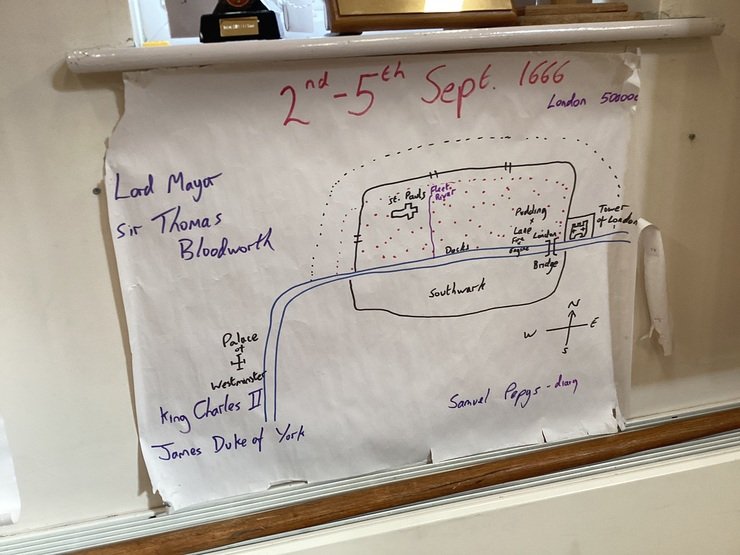 2nd - 5th Sept. 1666
London 500000
Lord Mayor
Sir Thomas
Bloodworth
St. Pauls
Fleet
River
Pudding
Lane
Fire
Engine
London
Bridge
Tower
of London
Docks
Southwark
N
W E
S
Palace
of
Westminster
King Charles II
James Duke of York
Samuel Pepys - diary